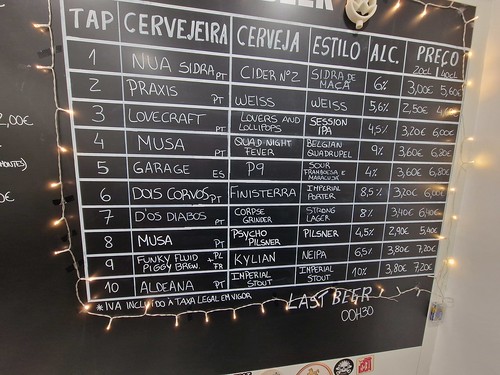 TAP CERVEJEIRA CERVEJA ESTILO ALC. PREÇO
20cl 40cl
1 NUA SIDRA PT CIDER Nº2 SIDRA DE MAÇÃ 6% 3,00€ 5,60€
2 PRAXIS PT WEISS WEISS 5,6% 2,50€
3 LOVECRAFT PT LOVERS AND LOLLIPOPS SESSION IPA 4,5% 3,20€ 6,00€
4 MUSA PT QUAD NIGHT FEVER BELGIAN QUADRUPEL 9% 3,60€ 6,80€
5 GARAGE ES P9 SOUR FRAMBOESA E MARACUJÁ 4% 3,60€ 6,80€
6 DOIS CORVOS PT FINISTERRA IMPERIAL PORTER 8,5% 3,20€ 6,00€
7 D'OS DIABOS PT CORPSE GRINDER STRONG LAGER 8% 3,40€ 6,40€
8 MUSA PT PSYCHO PILSNER PILSNER 4,5% 2,90€ 5,40€
9 FUNKY FLUID + PL PIGGY BREW. FR KYLIAN NEIPA 6,5% 3,80€ 7,20€
10 ALDEANA PT IMPERIAL STOUT IMPERIAL STOUT 10% 3,80€ 7,20€
*IVA INCLUÍDO À TAXA LEGAL EM VIGOR
LAST BEER
00H30
2,00€